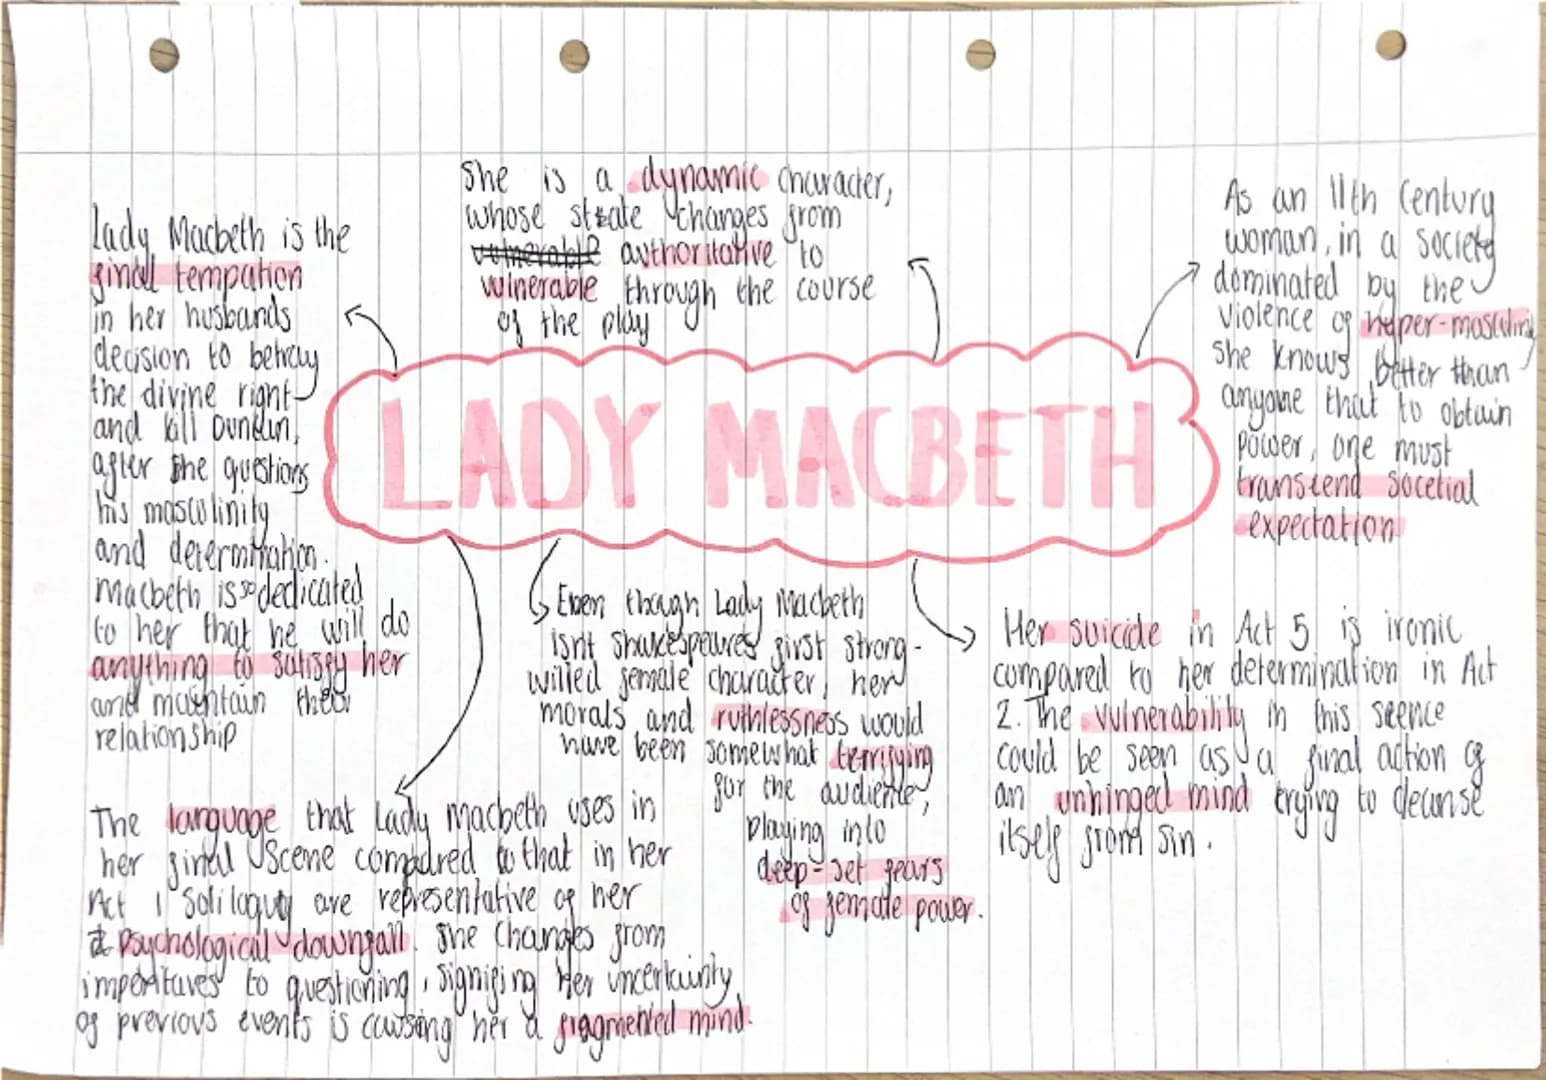 LADY MACBETH
Lady Macbeth is the
final tempation
in her husbands
decision to betray
the divine right
and kill Duncan,
after she questions
his masculinity
and determination.
Macbeth is so dedicated
to her that he will do
anything to satisfy her
and maintain their
relationship
She is a dynamic character,
whose state changes from
vulnerable authoritative to
vulnerable through the course
of the play
As an 11th Century
woman, in a society
dominated by the
violence of hyper-masculinity
she knows better than
anyone that to obtain
power, one must
transcend socetial
expectation
The language that Lady Macbeth uses in
her final scene compared to that in her
Act 1 Soliloquy are representative of her
psychological downfall. She changes from
imperitaves to questioning, signifing her uncertainty
of previous events is causing her a fragmented mind.
Even though Lady Macbeth
isnt Shakespeares first strong-
willed female character, her
morals and ruthlessness would
have been somewhat terrifying
for the audience,
playing into
deep-set fears
of female power.
Her suicide in Act 5 is ironic
compared to her determination in Act
2. The vulnerability in this scence
could be seen as a final action of
an unhinged mind trying to cleanse
itself from sin.